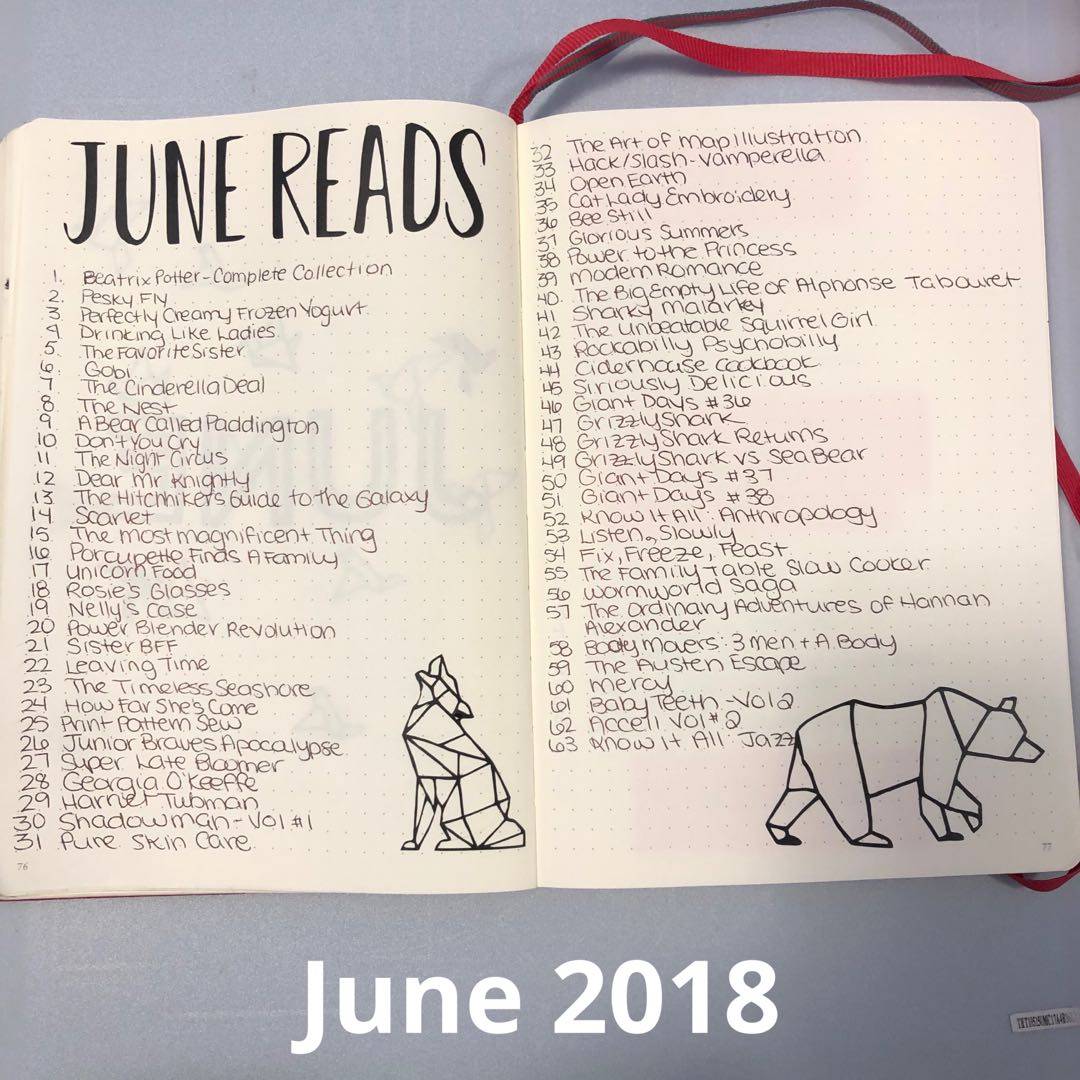 JUNE READS
1. Beatrix Potter - Complete Collection
2. Pesky Fly
3. Perfectly Creamy Frozen Yogurt
4 Drinking Like Ladies
5. The Favorite Sister
6. Gobi
7 The Cinderella Deal
8. The Nest
9 A Bear Called Paddington
10 Don't You Cry
11 The Night Circus
12 Dear Mr Knightly
13 The Hitchhiker's Guide to the Galaxy
14 Scarlet
15 The most magnificent Thing
16 Porcupette Finds A Family
17 Unicorn Food
18 Rosie's Glasses
19 Nelly's Case
20 Power Blender Revolution
21 Sister BFF
22 Leaving Time
23 The Timeless Seashore
24 How Far She's Come
25 Print Pattern Sew
26 Junior Braves Apocalypse
27 Super Late Bloomer
28 Georgia O'Keeffe
29 Harriet Tubman
30 Shadowman - Vol #1
31 Pure Skin Care
76
32 The Art of map illustration
33 Hack/Slash - Vamperella
34 Open Earth
35 Cat Lady Embroidery
36 Bee Still
37 Glorious Summers
38 Power to the Princess
39 Modern Romance
40. The Big Empty Life of Alphonse Tabouret
41 Sharky Malarkey
42 The Unbeatable Squirrel Girl
43 Rockabilly Psychobilly
44 Ciderhouse Cookbook
45 Siriously Delicious
46 Giant Days #36
47 GrizzlyShark
48 GrizzlyShark Returns
49 GrizzlyShark vs SeaBear
50 Giant Days #37
51 Giant Days #38
52 Know It All: Anthropology
53 Listen, Slowly
54 Fix, Freeze, Feast
55 The Family Table Slow Cooker
56 Wormworld Saga
57 The Ordinary Adventures of Hannah
Alexander
58 Body Movers: 3 men + A Body
59 The Austen Escape
60 mercy
61 Baby Teeth - Vol 2
62 Accell Vol #2
63 Know It All: Jazz
77
June 2018